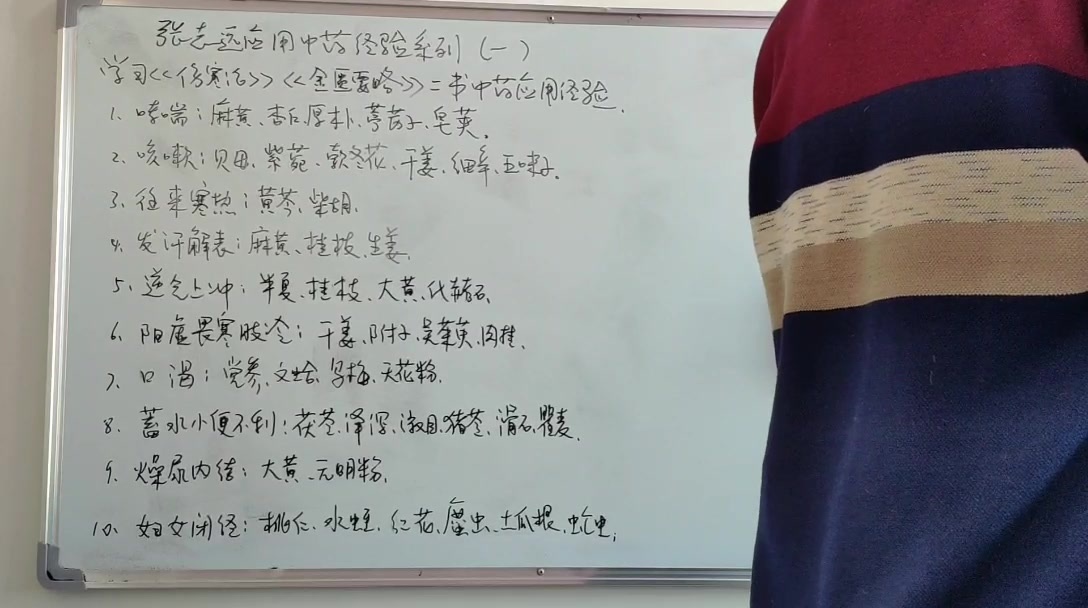 张志远应用中药经验系列(一)
学习<<伤寒论>><<金匮要略>>二书中药应用经验.
1、哮喘:麻黄、杏仁、厚朴、葶苈子、皂荚。
2、咳嗽:贝母、紫菀、款冬花、干姜、细辛、五味子.
3、往来寒热:黄芩、柴胡.
4、发汗解表:麻黄、桂枝、生姜.
5、逆气上冲:半夏、桂枝、大黄、代赭石
6、阳虚畏寒肢冷:干姜、附子、吴茱萸、肉桂.
7、口渴:党参、文蛤、乌梅、天花粉.
8、蓄水小便不利:茯苓、泽泻、椒目、猪苓、滑石、瞿麦.
9、燥尿内结:大黄、元明粉.
10、妇女闭经:桃仁、水蛭、红花、䗪虫、土瓜根、虻虫;